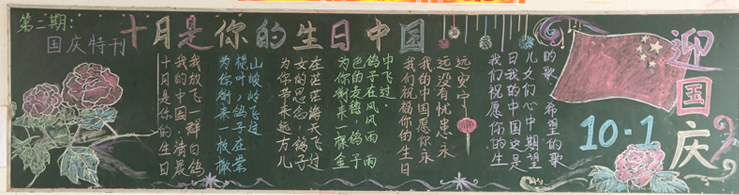 第二期:
国庆特刊
十月是你的生日中国
十月是你的生日
我的中国,清晨
我放飞一群白鸽
为你衔来一枚橄
榄叶,鸽子在崇
山峻岭飞过
为你带来远方儿
女的思念,鸽子
在茫茫海天飞过
为你衔来一棵金
色的 鸽子
鸽子在风风雨雨
中飞过.
我们祝福你的生日
我的中国愿你永
远没有忧患永
远安宁
我们祝愿你的生
日我的中国这是
儿女们心中期望
的歌,希望的歌
迎国庆
10·1